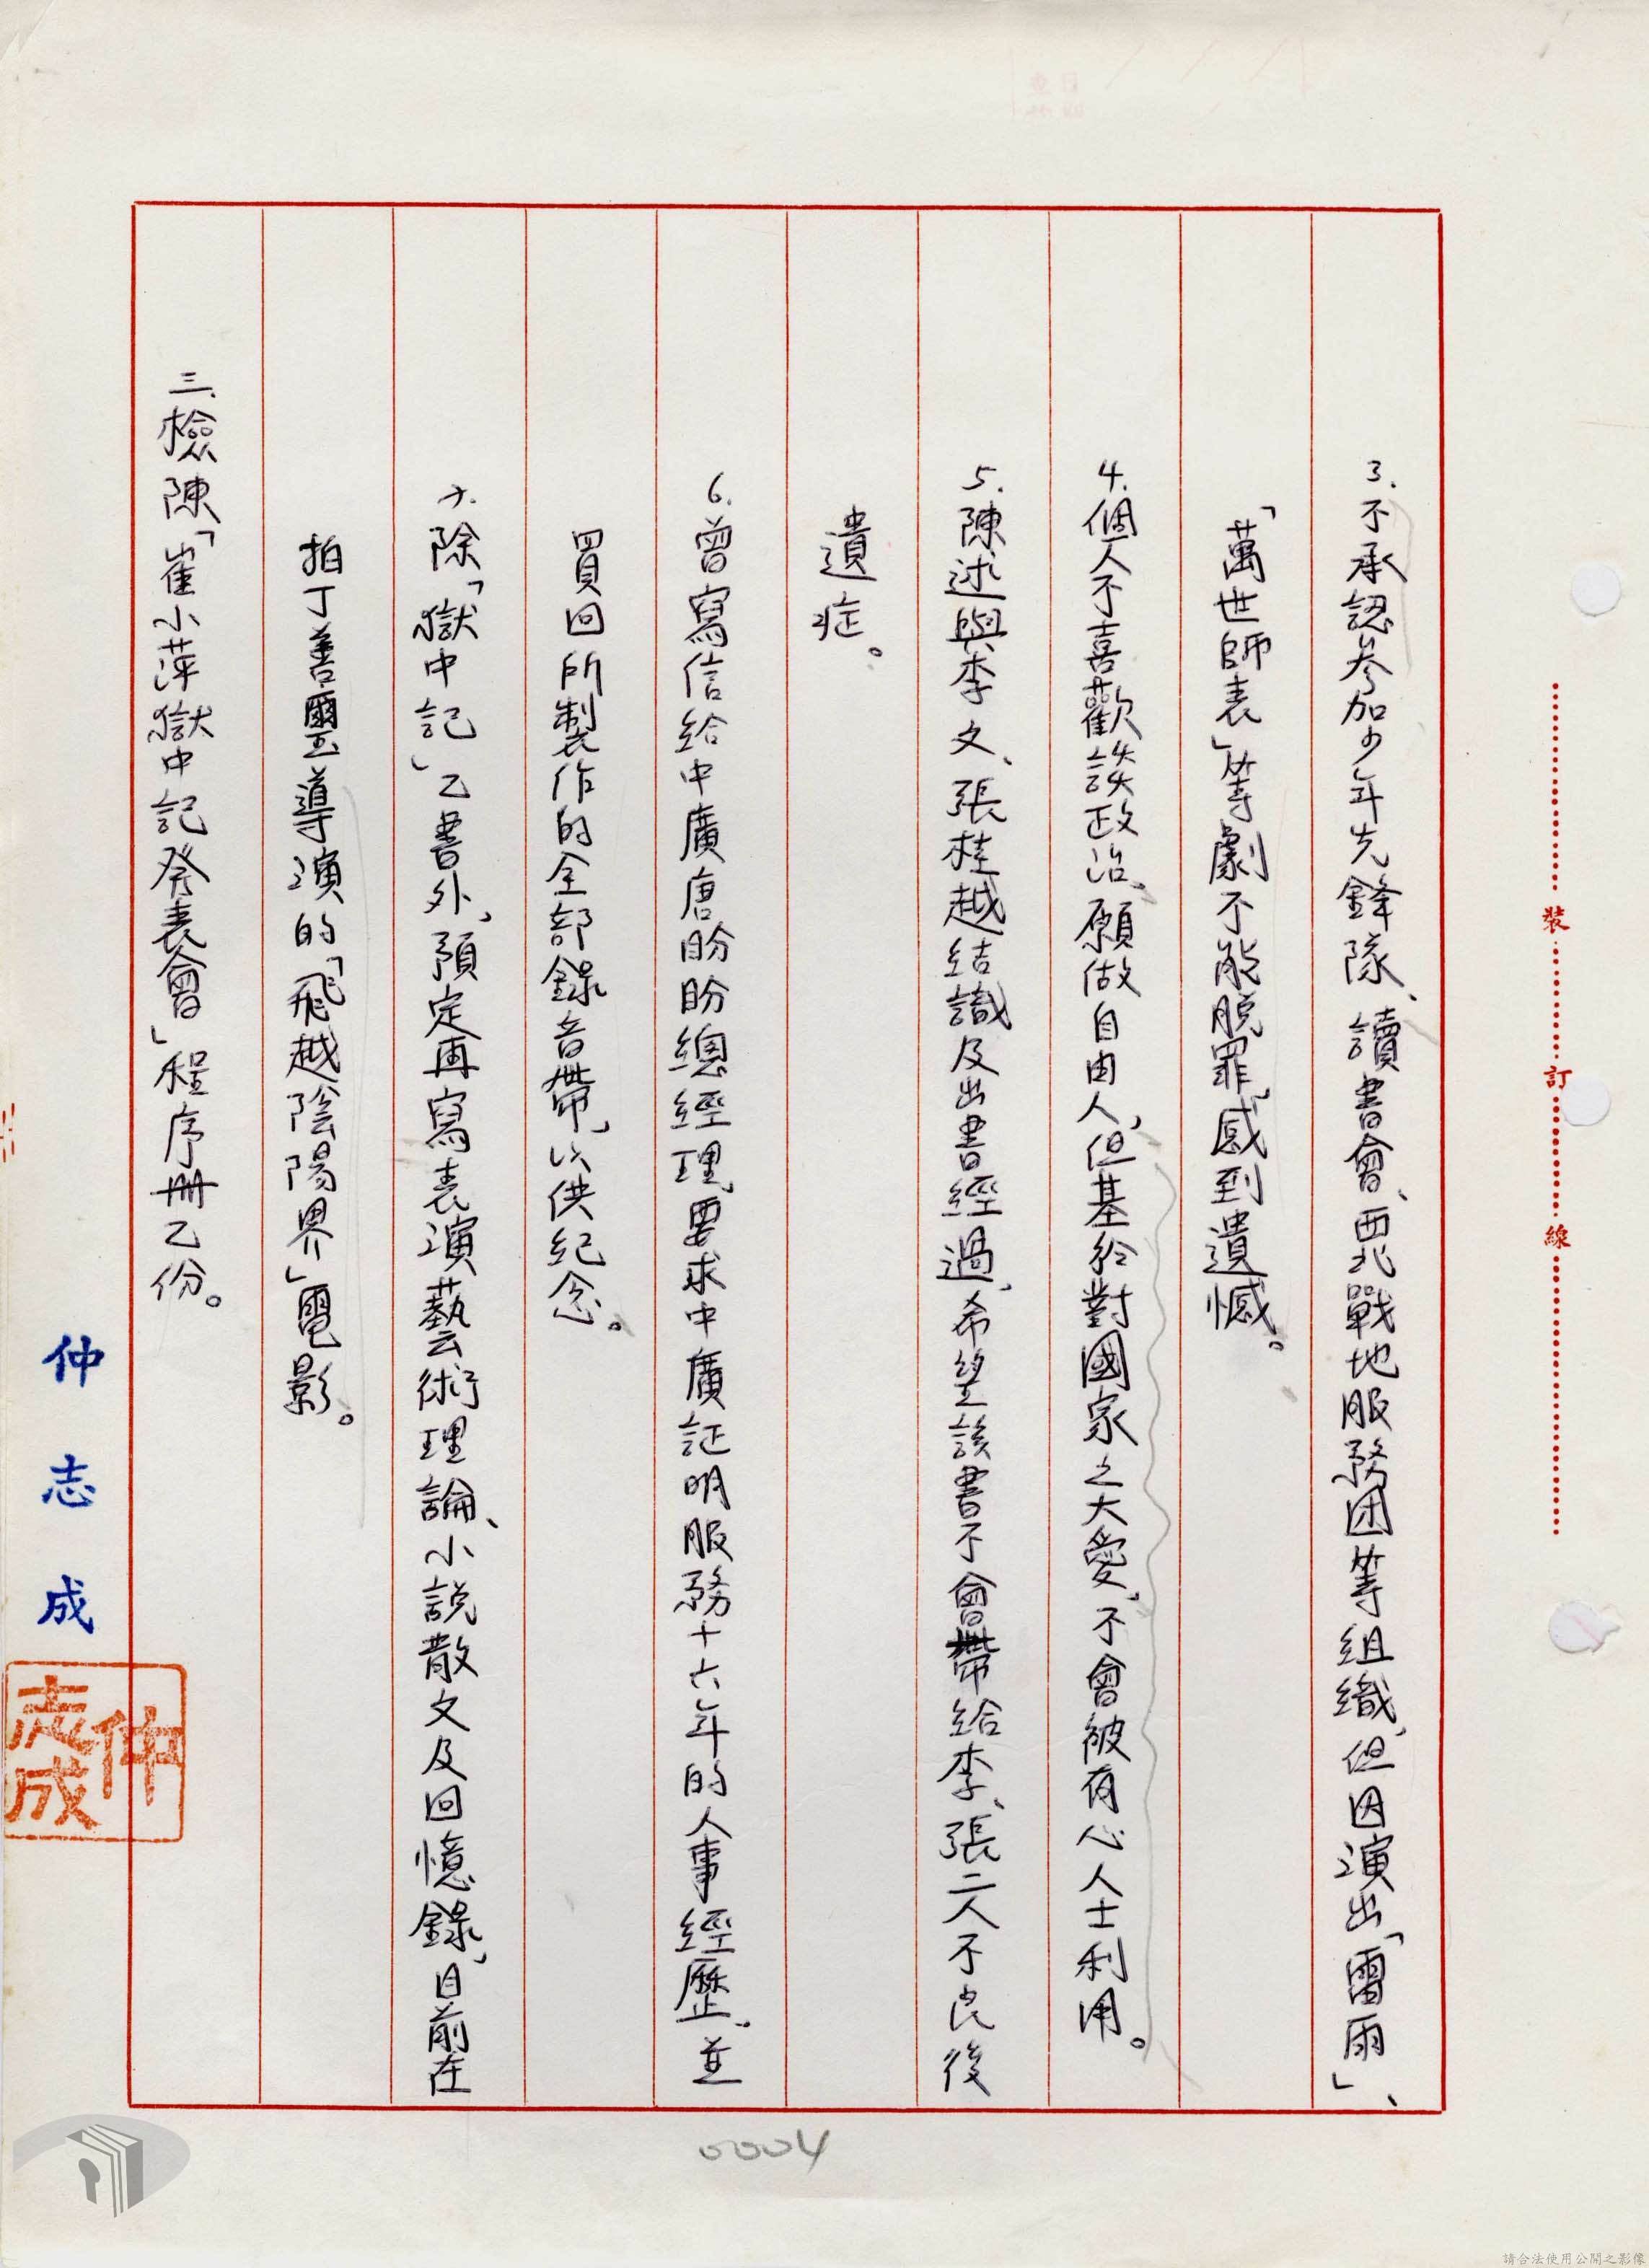 3.不承認參加少年先鋒隊、讀書會、西北戰地服務团等組織,但因演出「雷雨」、
「萬世師表」等劇不能脫罪,感到遺憾。
4.個人不喜歡談政治,願做自由人,但基於對國家之大愛,不會被有心人士利用。
5.陳述與李文、張桂越結識及出書經過,希望該書不會帶給李、張二人不良後
遺症。
6.曾寫信給中廣唐盼盼總經理,要求中廣証明服務十六年的人事經歷,並
買回所製作的全部錄音帶,以供紀念。
7.除「獄中記」乙書外,預定再寫表演藝術理論、小說散文及回憶錄,目前在
拍丁善璽導演的「飛越陰陽界」電影。
三、檢陳「崔小萍獄中記發表會」程序冊乙份。
仲志成
仲志成
裝訂線
0004
請合法使用公開之影像